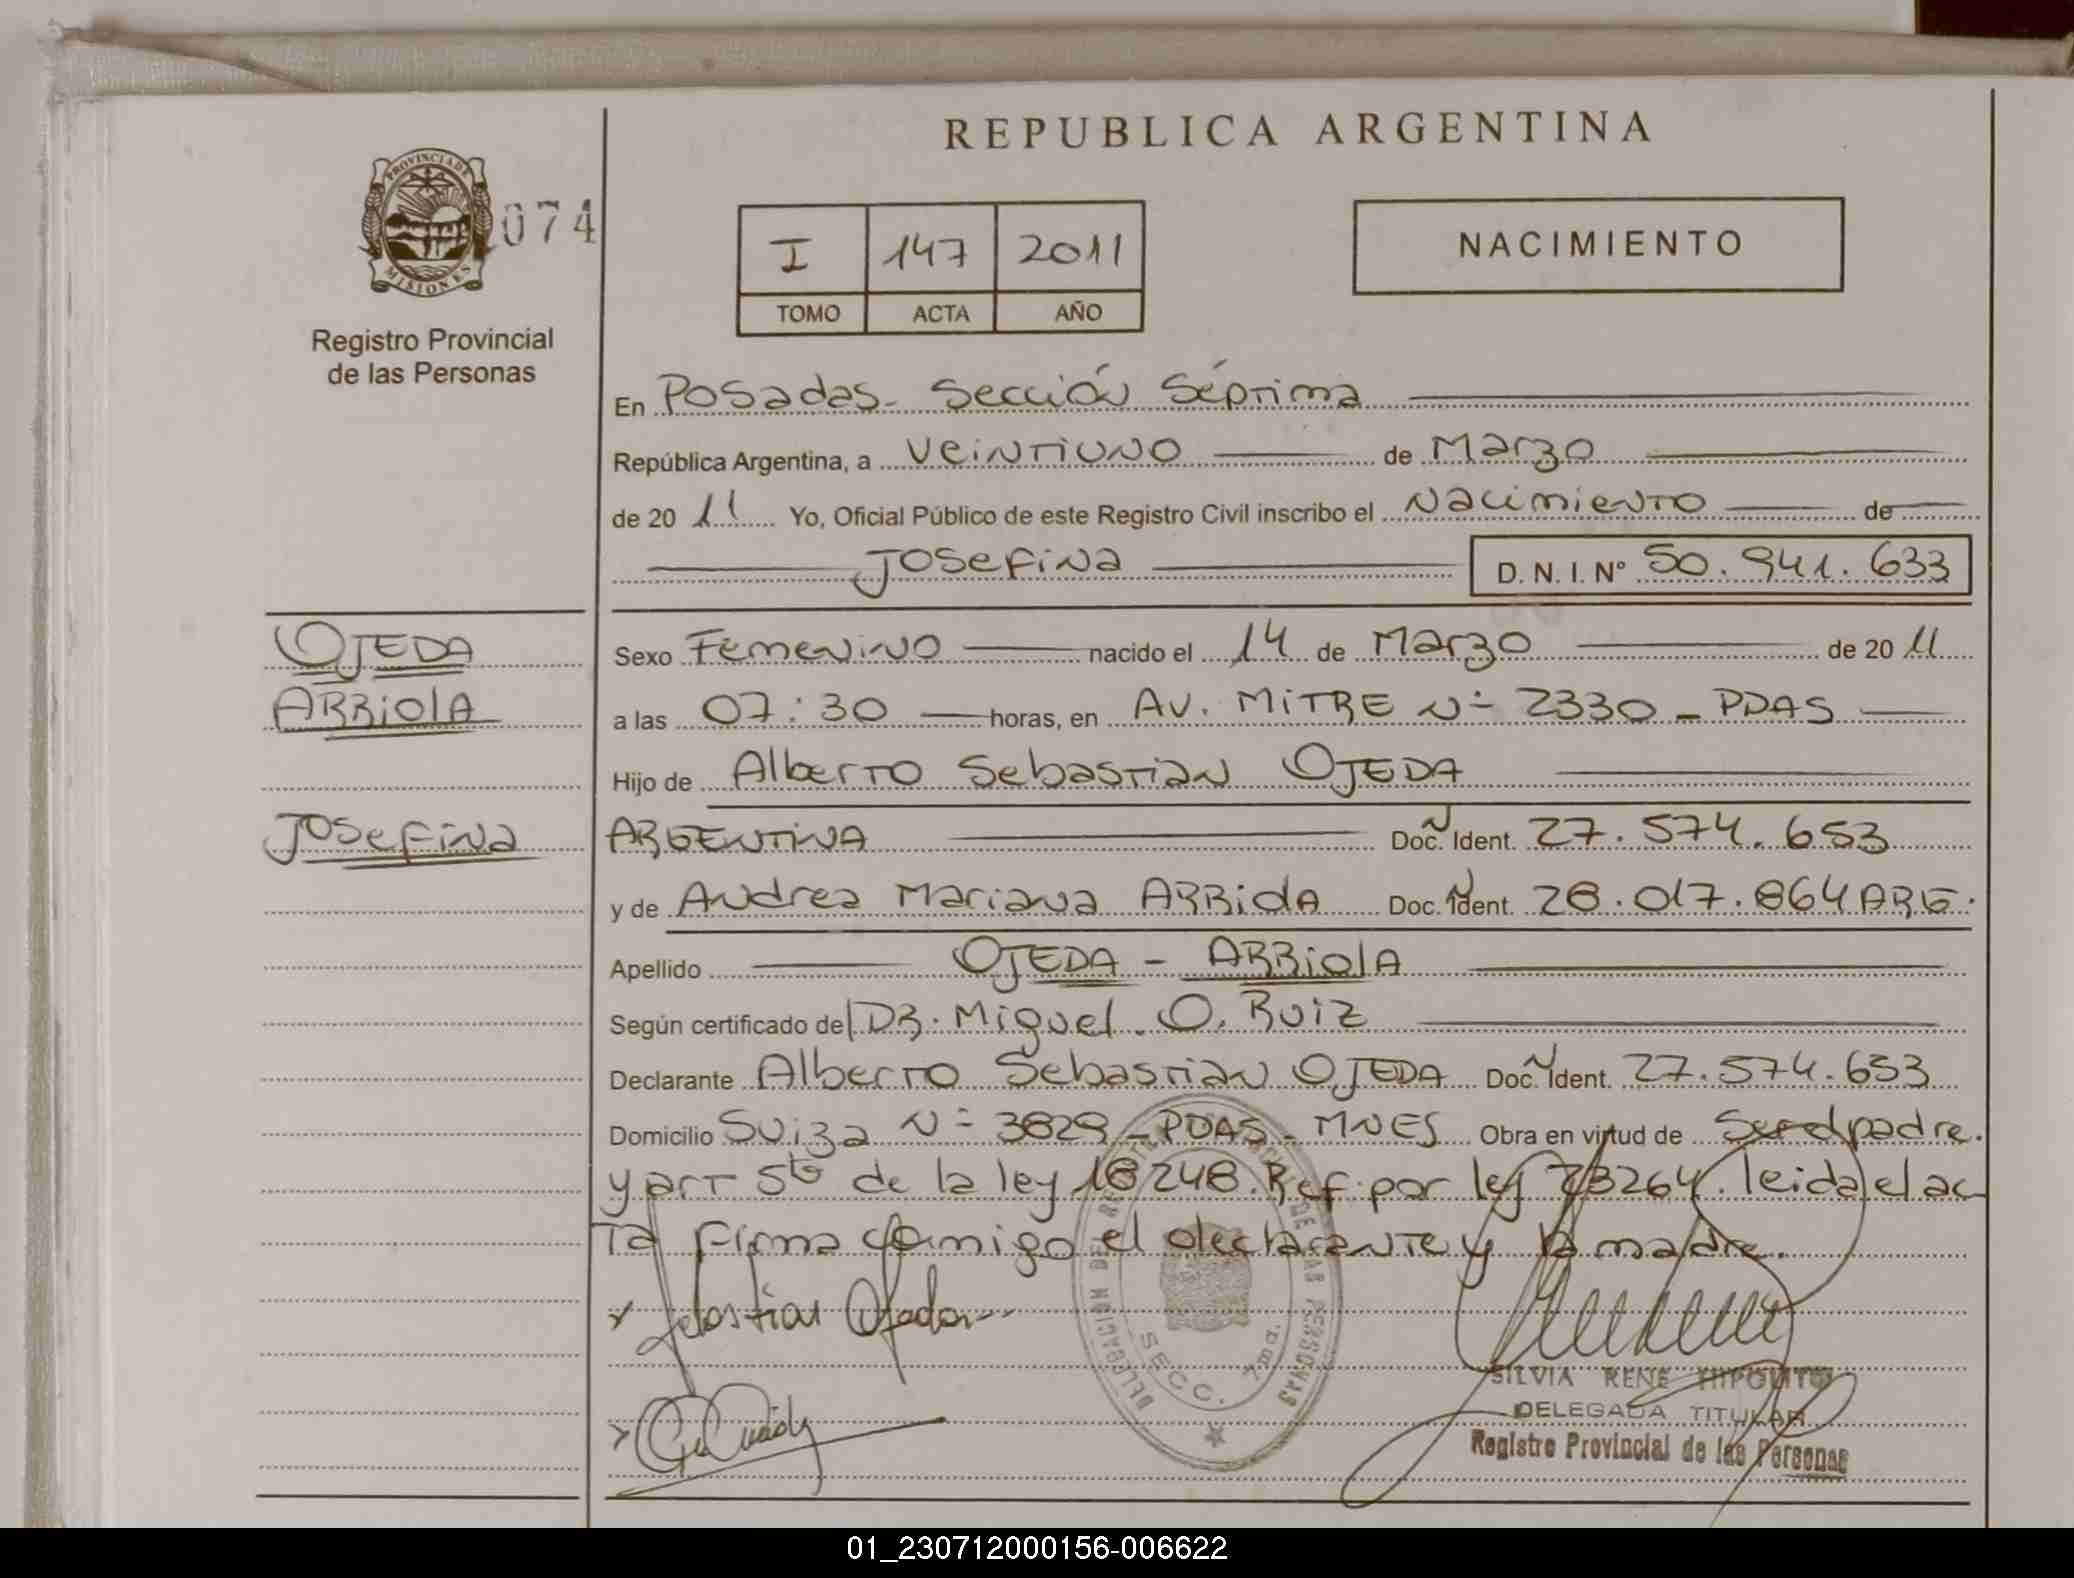 REPUBLICA ARGENTINA
PROVINCIA DE MISIONES
074
Registro Provincial
de las Personas
I 147 2011
TOMO ACTA AÑO
NACIMIENTO
En Posadas - Sección Séptima
República Argentina, a Veintiuno de Marzo
de 2011 Yo, Oficial Público de este Registro Civil inscribo el Nacimiento de
Josefina D. N. I. Nº 50.941.633
OJEDA
ARRiolA
Josefina
Sexo Femenino nacido el 14 de Marzo de 2011
a las 07:30 horas, en AV. MiTRE Nº 2330 - PDAS
Hijo de Alberto Sebastian OJEDA
ARGENTINA Doc. N Ident. 27.574.653
y de Andrea Mariana ARRiolA Doc. N Ident. 28.017.864 ARG.
Apellido OJEDA - ARRiolA
Según certificado del DR. Miguel O. Ruiz
Declarante Alberto Sebastian OJEDA Doc. N Ident. 27.574.653
Domicilio Suiza Nº 3829 - PDAS - MNES Obra en virtud de Ser el padre.
y art 5to de la ley 18248. Ref. por ley 23264. leida el ac
ta firma conmigo el declarante y la madre.
x Sebastian Ojeda
x
DELEGACION DEL REGISTRO PROVINCIAL DE LAS PERSONAS
SECC. 7ma.
SILVIA RENE HIPOLITO
DELEGADA TITULAR
Registro Provincial de las Personas
01_230712000156-006622